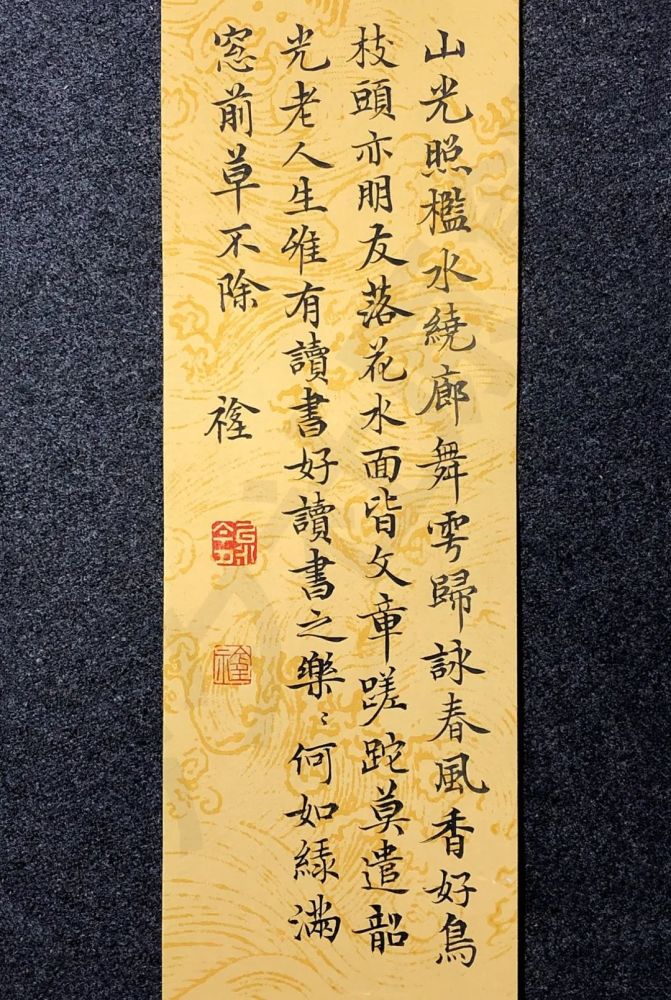 山光照檻水繞廊舞雩歸詠春風香好鳥
枝頭亦朋友落花水面皆文章蹉跎莫遣韶
光老人生唯有讀書好讀書之樂〻何如綠滿
窓前草不除